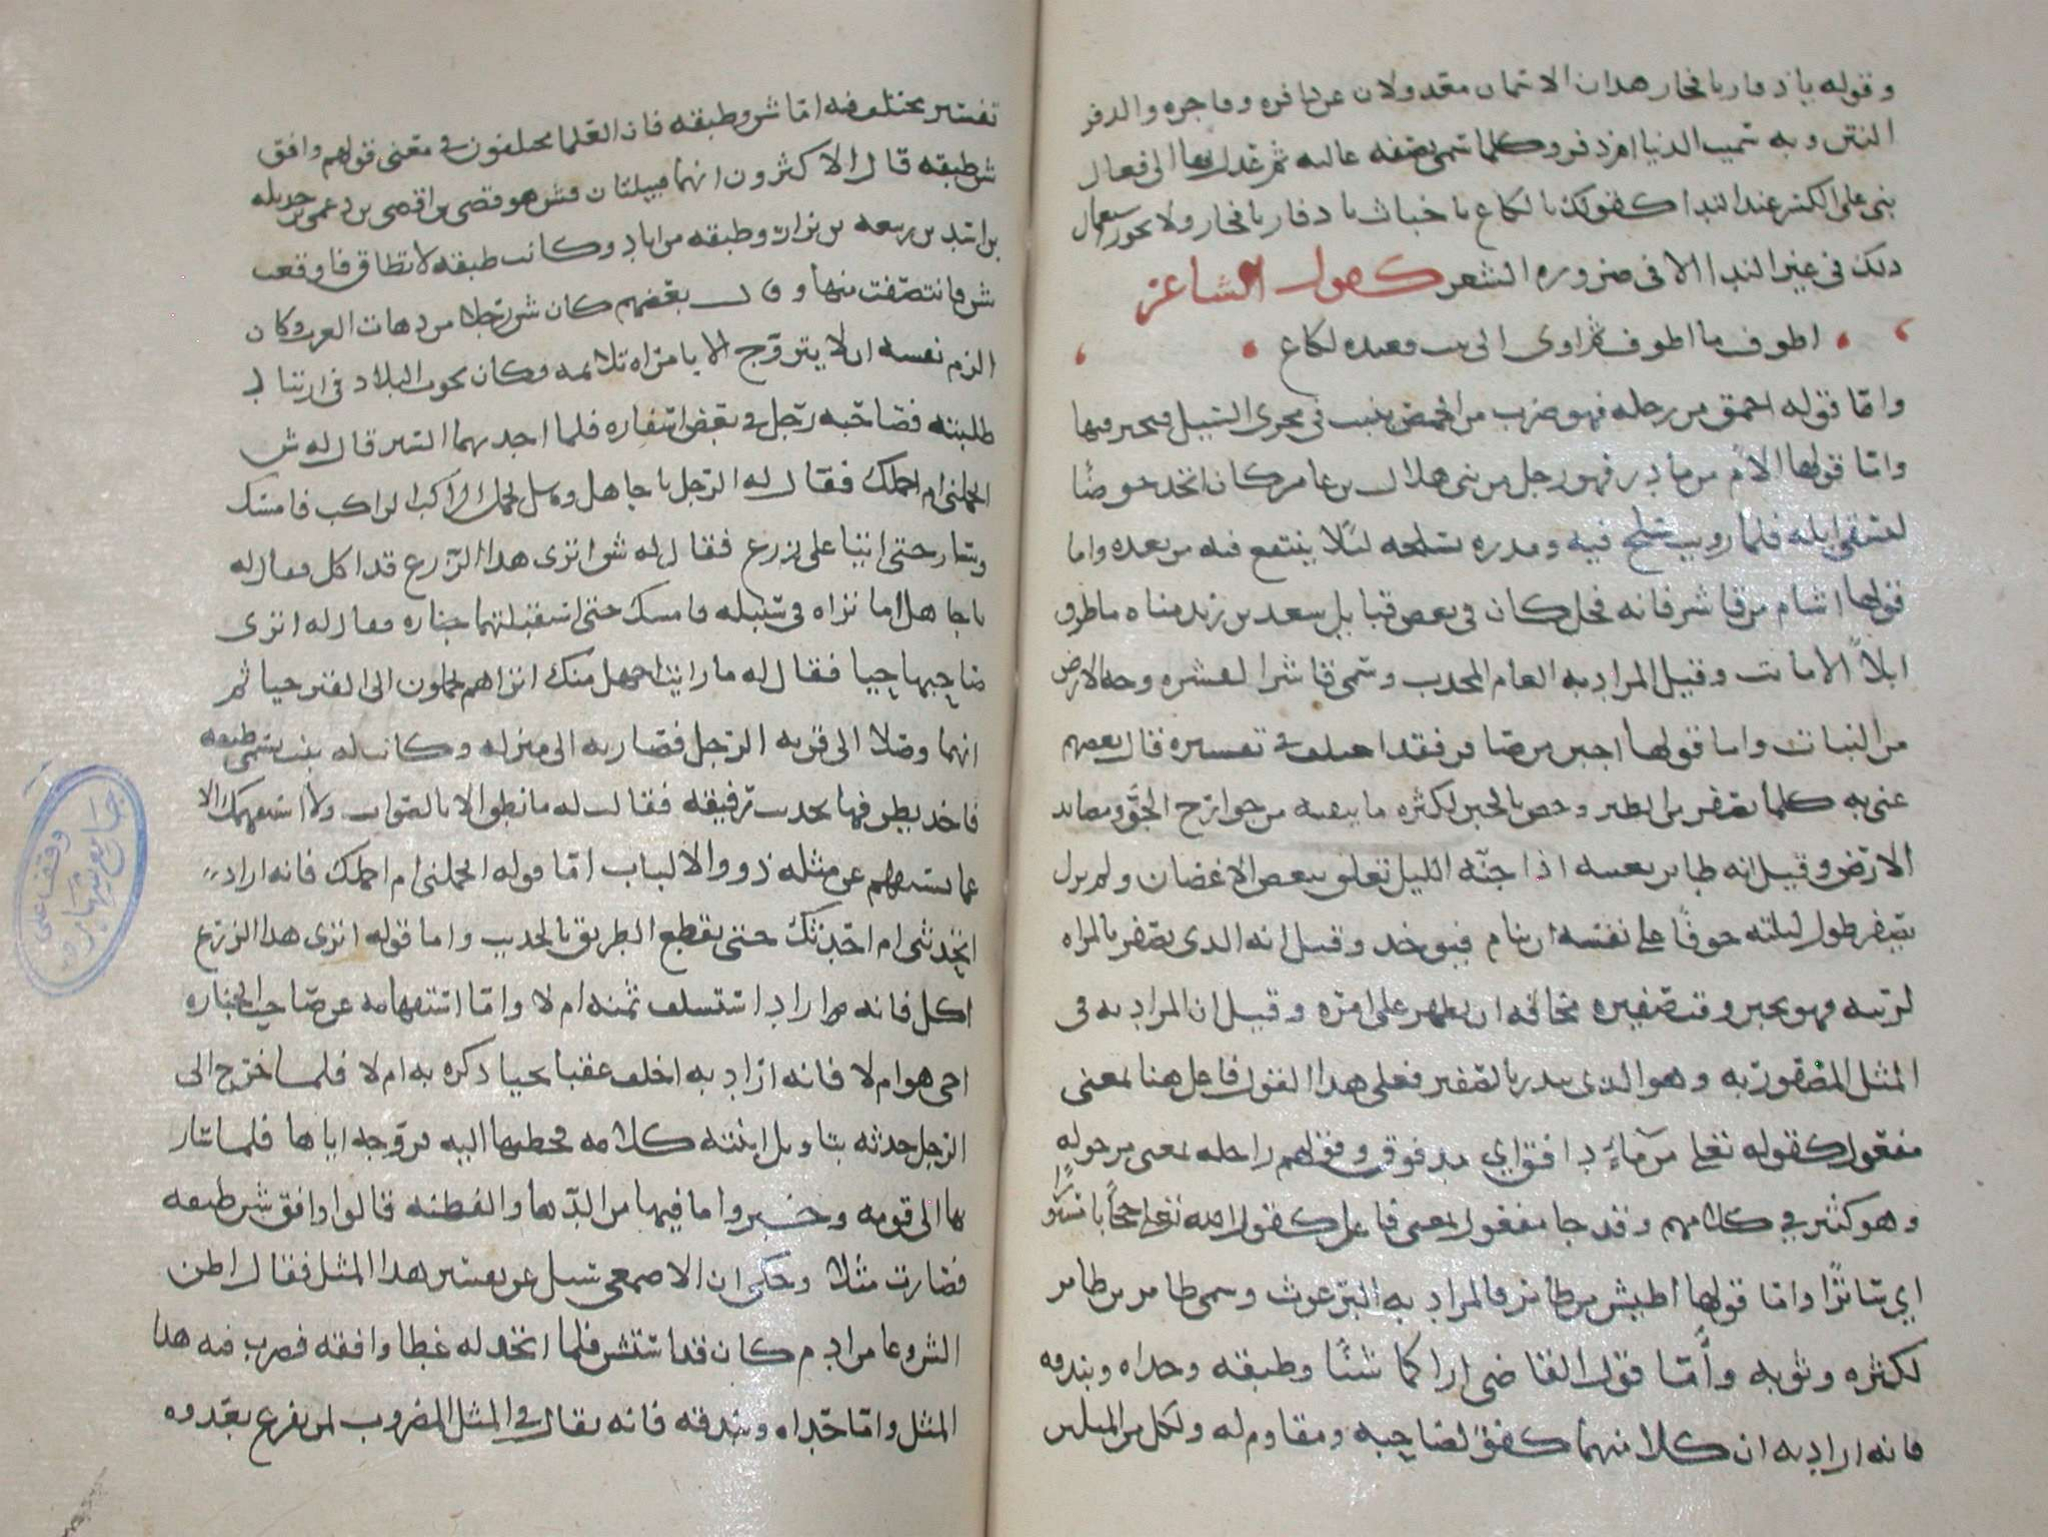 وقوله يا دفار يا فجار هذان الاسمان معدولان عن دافره وفاجره والدفر
النتن وبه سميت الدنيا ام دفر وكلما سمي بصفه غالبه ثم عدل بها الى فعال
بني على الكسر عند الندا كقولك يا لكاع يا خباث يا دفار يا فجار ولا يجوز استعمال
ذلك في غير الندا الا في ضروره الشعر كقول الشاعر
اطوف ما اطوف ثم اوى الى بيت قعيده لكاع
واما قوله احمق من رجله فهو ضرب من الحمض ينبت في مجرى السيل فيجر فيها
واما قولها الأم من مادر فهو رجل من بني هلال بن عامر كان اتخذ حوضا
لسقي ابله فلما رويت سلح فيه ومدره بسلحه لئلا ينتفع فيه من بعده واما
قولها اشام من قاشر فانه فحل كان في بعض قبايل سعد بن زيد مناه ما طرق
ابلا الا ماتت وقيل المراد به العام المجدب وسمي قاشرا لقشره وجه الارض
من النبات واما قولها اجبن من صافر فقد اختلف في تفسيره قال بعضهم
عنى به كلما يصفر من الطير وخص بالجبن لكثره ما يتقيه من جوارح الجو ومصايد
الارض وقيل انه طاير بعينه اذا جنه الليل تعلق ببعض الاغصان ولم يزل
يصفر طول ليلته خوفا على نفسه ان ينام فيوخذ وقيل انه الذي يصفر بالمراه
لريبه فهو يجبن وقت صفيره مخافه ان يظهر على امره وقيل ان المراد به في
المثل المصفور به وهو الذي ينذر بالصفير فعلى هذا القول فاعل هنا بمعنى
مفعول كقوله تعلى من ماء دافق اي مدفوق وقولهم راحله بمعنى مرحوله
وهو كثير في كلامهم وقد جا مفعول بمعنى فاعل كقول الله تعلى حجابا مستورا
اي ساترا واما قولها اطيش من طامر فالمراد به البرغوث وسمي طامر بن طامر
لكثره وثوبه واما قول القاضي اراكما شنا وطبقه وحداه وبندقه
فانه اراد به ان كلا منهما كفو لصاحبه ومقاوم له ولكل من المثلين
تفسير يختلف فيه اما شن وطبقه فان العلما يختلفون في معنى قولهم وافق
شن طبقه قال الاكثرون انهما قبيلتان فشن هو قصى بن افصى بن دعمي بن جديله
بن اسد بن ربيعه بن نزار وطبقه من اياد وكانت طبقه لا تطاق فاوقعت
شن فانتصفت منها وقال بعضهم كان شن رجلا من دهات العرب وكان
الزم نفسه ان لا يتزوج الا بامراه تلائمه وكان يجوب البلاد في ارتياد
طلبته فصاحبه رجل في بعض اسفاره فلما اجد بهما السير قال له شن
اتحملني ام احملك فقال له الرجل يا جاهل وهل يحمل الراكب الراكب فامسك
وسار حتى اتيا على زرع فقال له شن اترى هذا الزرع قد اكل فقال له
يا جاهل اما تراه في سنبله فامسك حتى استقبلتهما جنازه فقال له اترى
صاحبها حيا فقال له ما رايت اجهل منك اتراهم يحملون الى القبر حيا ثم
انهما وصلا الى قريه الرجل فصار به الى منزله وكانت له بنت تسمى طبقه
فاخذ يطرفها بحديث رفيقه فقالت له ما نطق الا بالصواب ولا استفهمك الا
عما يستفهم عن مثله ذوو الالباب اما قوله اتحملني ام احملك فانه اراد
اتحدثني ام احدثك حتى يقطع الطريق بالحديث واما قوله اترى هذا الزرع
اكل فانه اراد استسلف ثمنه ام لا واما استفهامه عن صاحب الجنازه
احي هو ام لا فانه اراد به اخلف عقبا يحيا ذكره به ام لا فلما خرج الى
الرجل حدثه بتاويل ابنته كلامه فخطبها اليه فزوجه اياها فلما سار
بها الى قومه وخبروا ما فيها من الدها والفطنه قالوا وافق شن طبقه
فصارت مثلا وحكي ان الاصمعي سيل عن تفسير هذا المثل فقال اظن
الشن وعا من ادم كان قد استشن فلما اتخذ له غطا وافقه فضرب فيه هذا
المثل واما حداه وبندقه فانه يقال في المثل المضروب لمن يفزع بعدوه
وقفا على